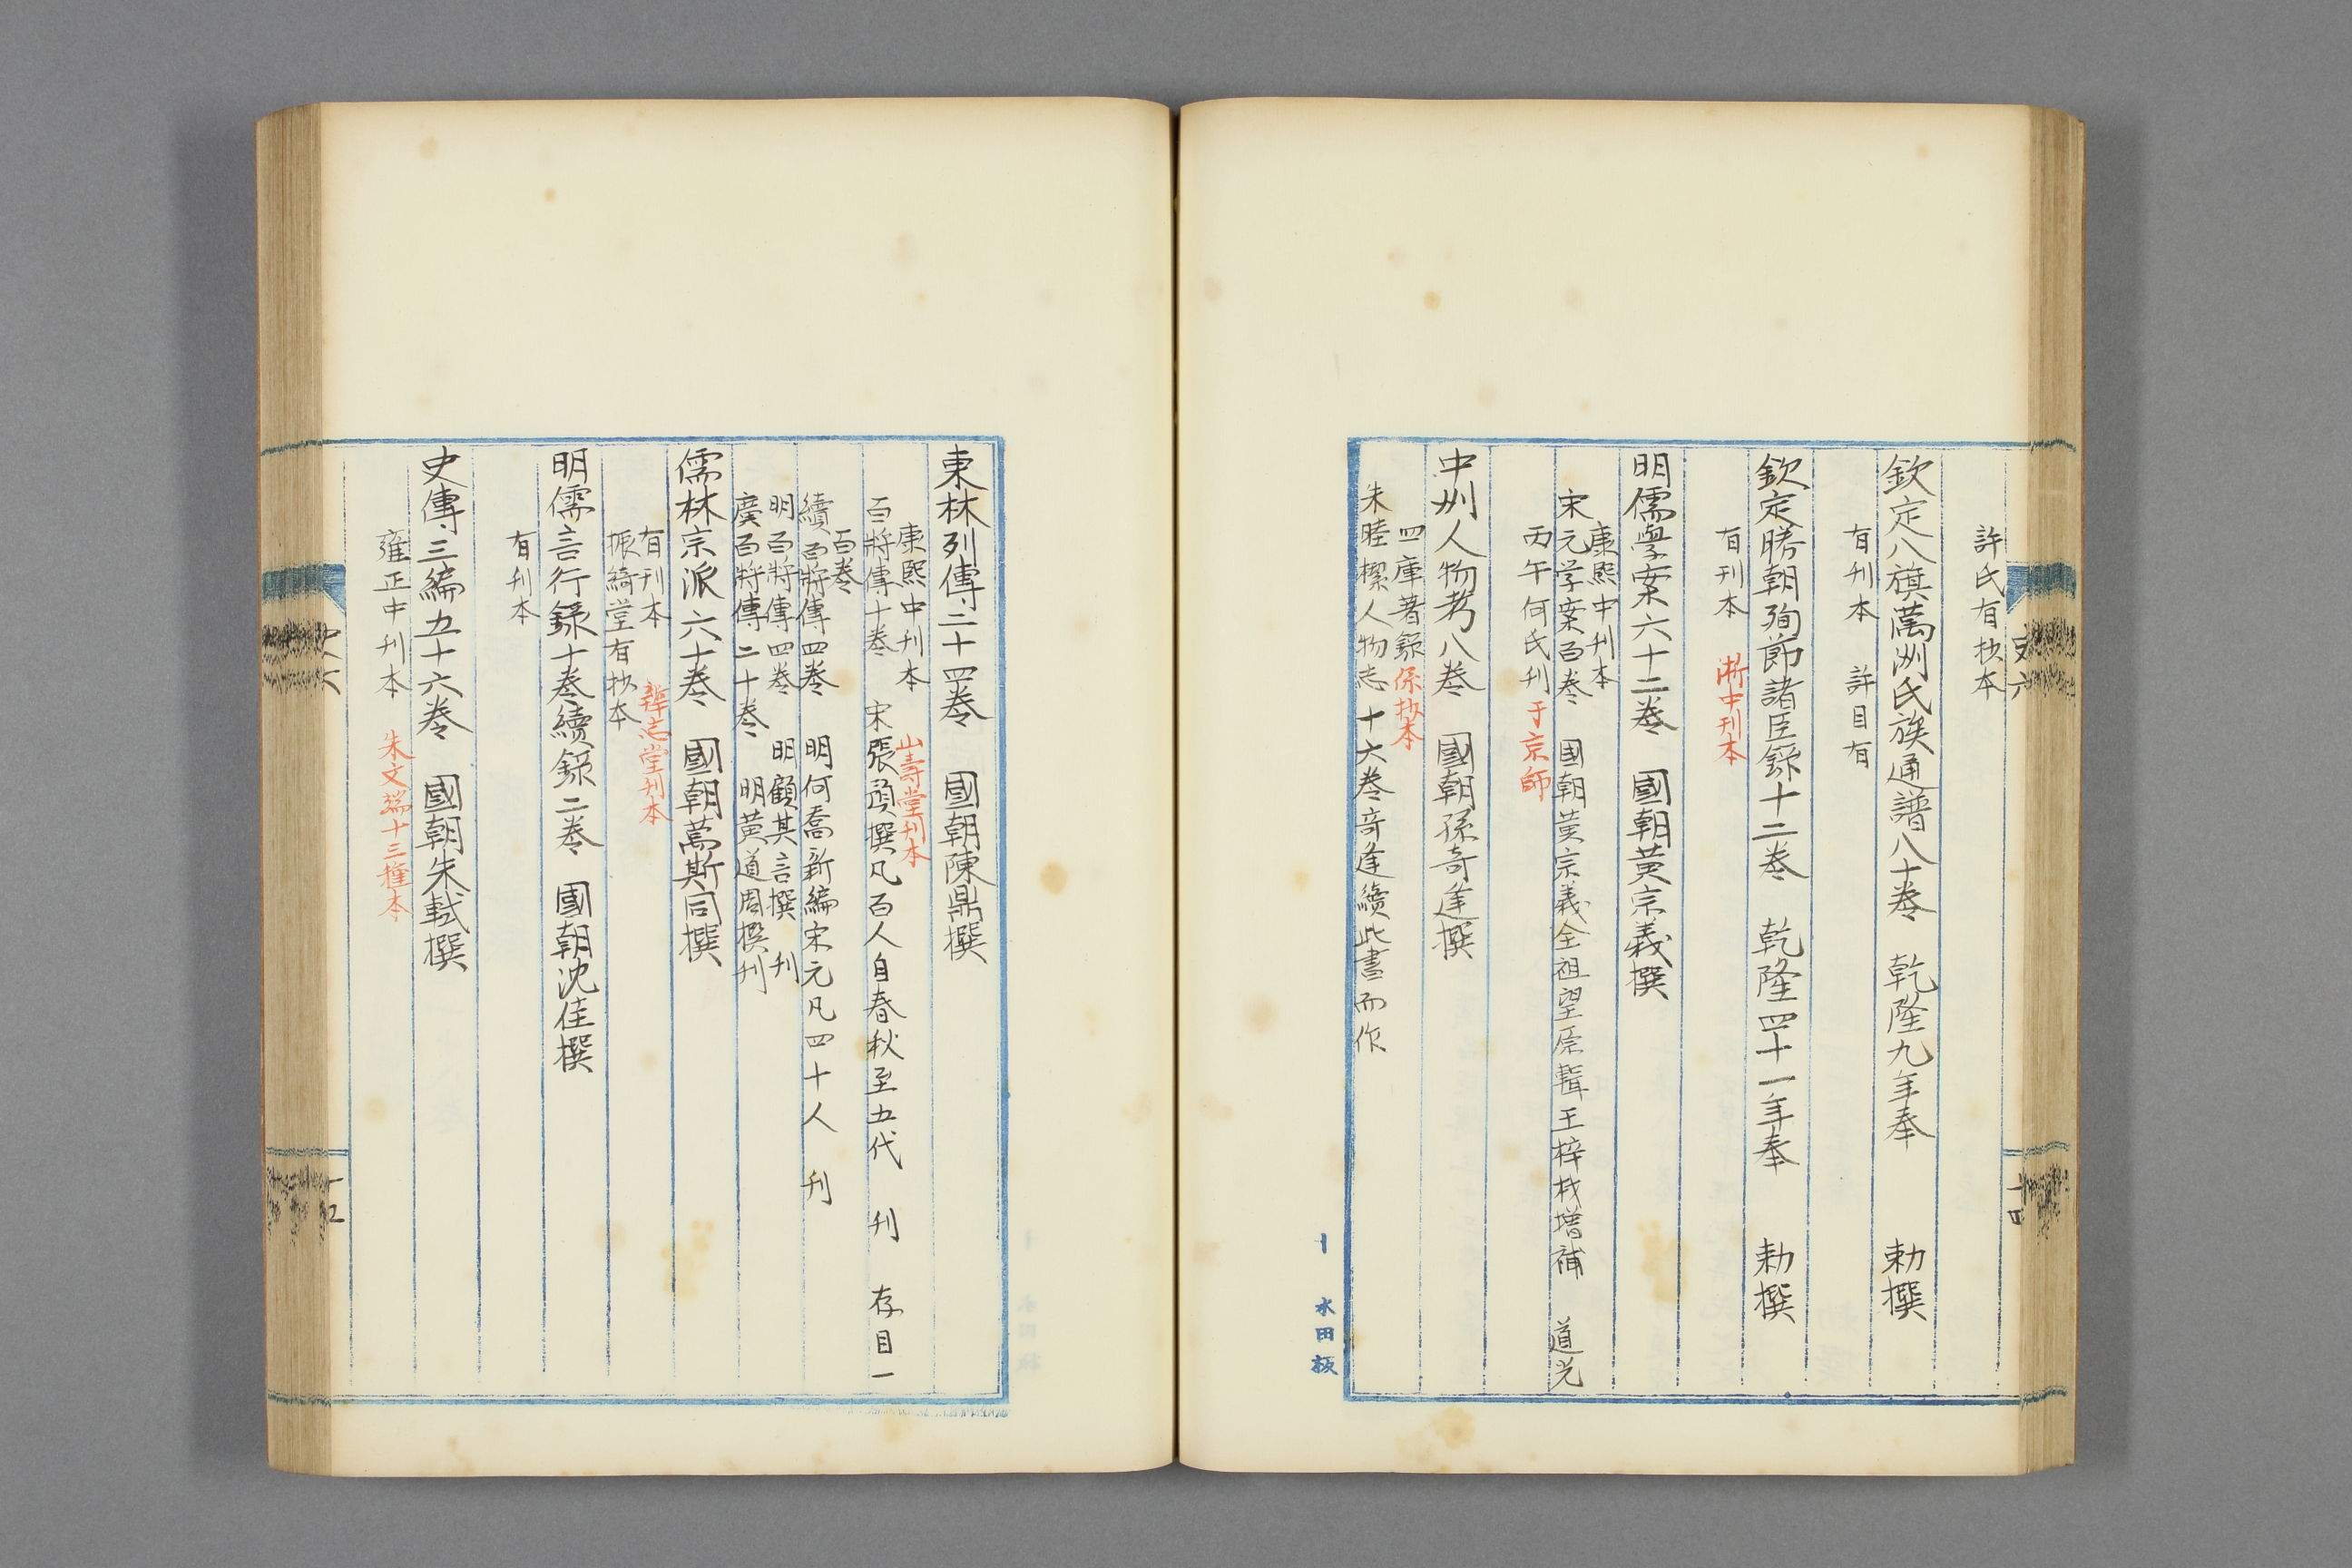 許氏有抄本
欽定八旗萬洲氏族通譜八十卷　乾隆九年奉　勅撰
有刊本　許目有
欽定勝朝殉節諸臣錄十二卷　乾隆四十一年奉　勅撰
有刊本　浙中刊本
明儒學案六十二卷　國朝黃宗羲撰
康熙中刊本
宋元学案百卷　國朝黃宗義全祖望原輯王梓材增補　道光
丙午何氏刊于京師
中州人物考八卷　國朝孫奇逢撰
四庫著錄係抄本
朱睦㮮人物志十六卷奇逢續此書而作
水田板
史六
十四
東林列傳二十四卷　國朝陳鼎撰
康熙中刊本　山壽堂刊本
百將傳十卷　宋張預撰凡百人自春秋至五代　刊　存目一
百卷
續百將傳四卷　明何喬新編宋元凡四十人　刊
明百將傳四卷　明顧其言撰　刊
廣百將傳二十卷　明黃道周撰刊
儒林宗派六十卷　國朝萬斯同撰
有刊本　辨志堂刊本
振綺堂有抄本
明儒言行錄十卷續錄二卷　國朝沈佳撰
有刊本
史傳三編五十六卷　國朝朱軾撰
雍正中刊本　朱文端十三種本